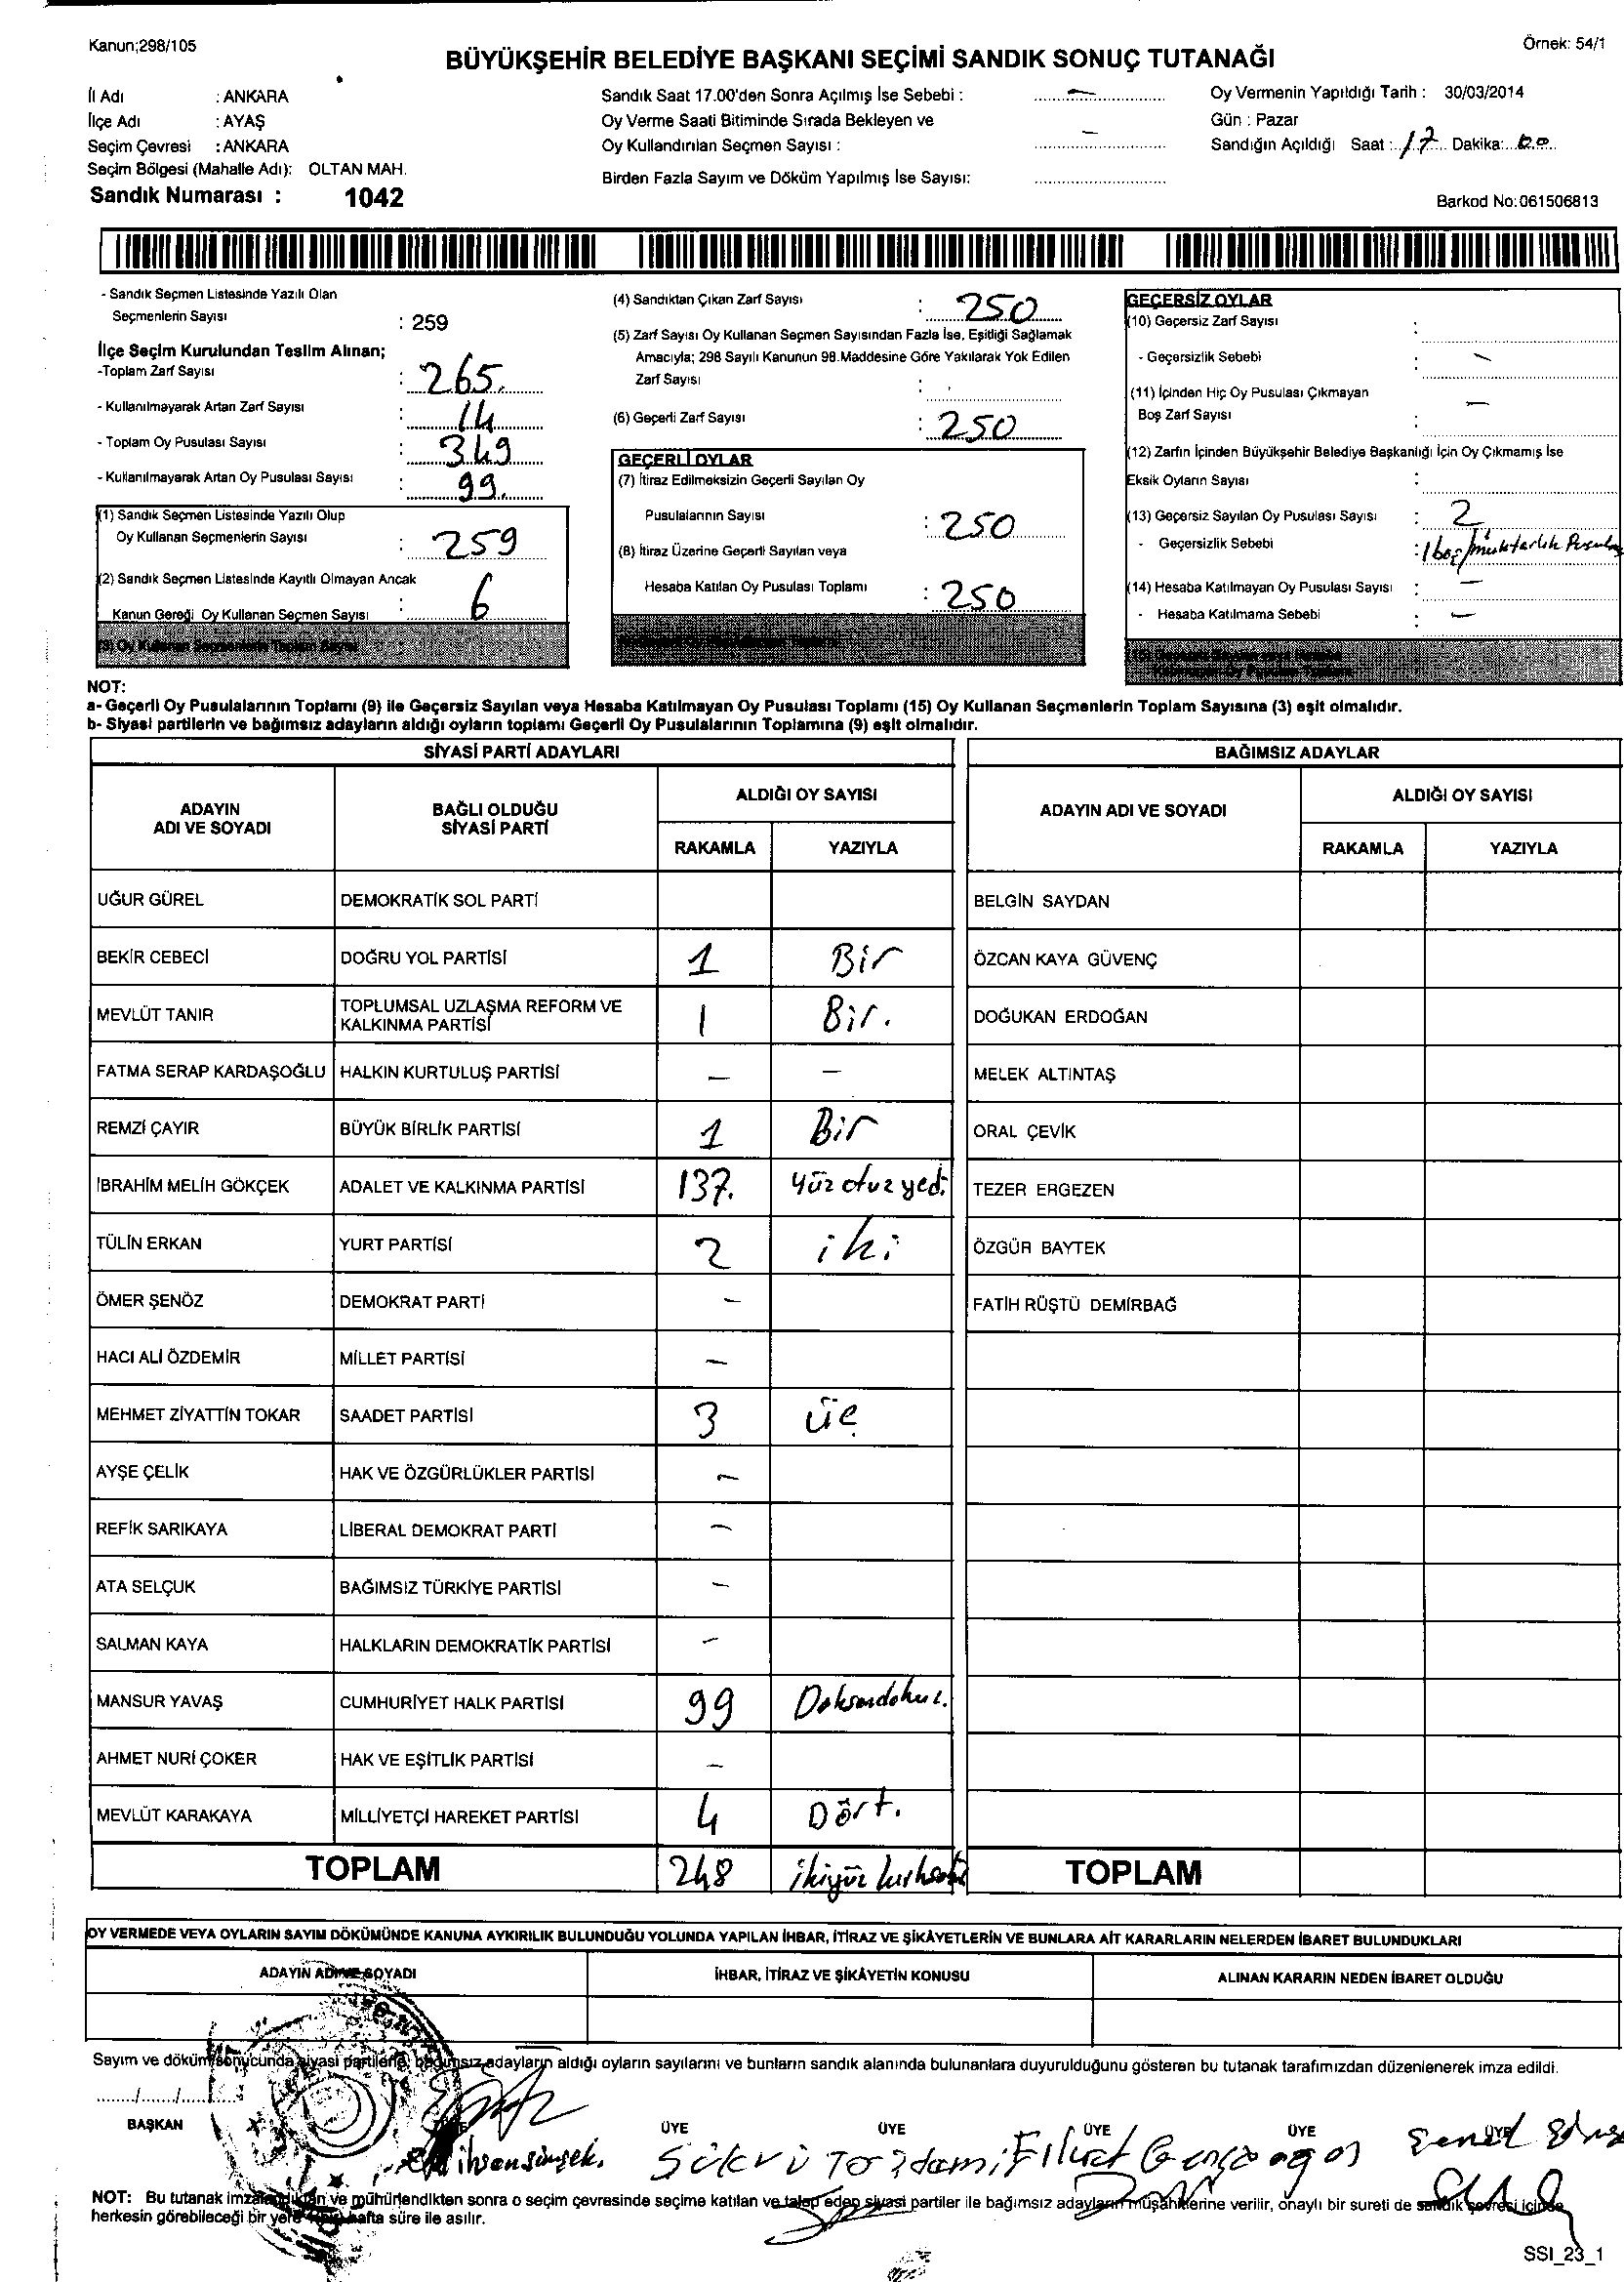 Kanun;298/105
Örnek: 54/1
BÜYÜKŞEHİR BELEDİYE BAŞKANI SEÇİMİ SANDIK SONUÇ TUTANAĞI
İl Adı : ANKARA
İlçe Adı : AYAŞ
Seçim Çevresi : ANKARA
Seçim Bölgesi (Mahalle Adı): OLTAN MAH.
Sandık Numarası : 1042
Sandık Saat 17.00'den Sonra Açılmış İse Sebebi : –
Oy Verme Saati Bitiminde Sırada Bekleyen ve
Oy Kullandırılan Seçmen Sayısı : –
Birden Fazla Sayım ve Döküm Yapılmış İse Sayısı:
Oy Vermenin Yapıldığı Tarih : 30/03/2014
Gün : Pazar
Sandığın Açıldığı Saat : 17 Dakika: 00
Barkod No:061506813
- Sandık Seçmen Listesinde Yazılı Olan
Seçmenlerin Sayısı : 259
İlçe Seçim Kurulundan Teslim Alınan;
-Toplam Zarf Sayısı : 265.
- Kullanılmayarak Artan Zarf Sayısı : 14
- Toplam Oy Pusulası Sayısı : 349
- Kullanılmayarak Artan Oy Pusulası Sayısı : 99.
(1) Sandık Seçmen Listesinde Yazılı Olup
Oy Kullanan Seçmenlerin Sayısı : 259
(2) Sandık Seçmen Listesinde Kayıtlı Olmayan Ancak
Kanun Gereği Oy Kullanan Seçmen Sayısı : 6
(3) Oy Kullanan Seçmenlerin Toplam Sayısı :
(4) Sandıktan Çıkan Zarf Sayısı : 250
(5) Zarf Sayısı Oy Kullanan Seçmen Sayısından Fazla İse, Eşitliği Sağlamak
Amacıyla; 298 Sayılı Kanunun 98.Maddesine Göre Yakılarak Yok Edilen
Zarf Sayısı :
(6) Geçerli Zarf Sayısı : 250
GEÇERLİ OYLAR
(7) İtiraz Edilmeksizin Geçerli Sayılan Oy
Pusulalarının Sayısı : 250
(8) İtiraz Üzerine Geçerli Sayılan veya
Hesaba Katılan Oy Pusulası Toplamı : 250
GEÇERSİZ OYLAR
(10) Geçersiz Zarf Sayısı :
- Geçersizlik Sebebi : –
(11) İçinden Hiç Oy Pusulası Çıkmayan
Boş Zarf Sayısı : –
(12) Zarfın İçinden Büyükşehir Belediye Başkanlığı İçin Oy Çıkmamış İse
Eksik Oyların Sayısı :
(13) Geçersiz Sayılan Oy Pusulası Sayısı : 2
- Geçersizlik Sebebi : 1 boş/muhtarlık
(14) Hesaba Katılmayan Oy Pusulası Sayısı : –
- Hesaba Katılmama Sebebi : –
NOT:
a- Geçerli Oy Pusulalarının Toplamı (9) ile Geçersiz Sayılan veya Hesaba Katılmayan Oy Pusulası Toplamı (15) Oy Kullanan Seçmenlerin Toplam Sayısına (3) eşit olmalıdır.
b- Siyasi partilerin ve bağımsız adayların aldığı oyların toplamı Geçerli Oy Pusulalarının Toplamına (9) eşit olmalıdır.
SİYASİ PARTİ ADAYLARI
ADAYIN ADI VE SOYADI
BAĞLI OLDUĞU SİYASİ PARTİ
ALDIĞI OY SAYISI
RAKAMLA YAZIYLA
UĞUR GÜREL DEMOKRATİK SOL PARTİ
BEKİR CEBECİ DOĞRU YOL PARTİSİ 1 Bir
MEVLÜT TANIR TOPLUMSAL UZLAŞMA REFORM VE KALKINMA PARTİSİ 1 Bir.
FATMA SERAP KARDAŞOĞLU HALKIN KURTULUŞ PARTİSİ – –
REMZİ ÇAYIR BÜYÜK BİRLİK PARTİSİ 1 Bir
İBRAHİM MELİH GÖKÇEK ADALET VE KALKINMA PARTİSİ 137. Yüz otuz yedi
TÜLİN ERKAN YURT PARTİSİ 2 iki
ÖMER ŞENÖZ DEMOKRAT PARTİ –
HACI ALİ ÖZDEMİR MİLLET PARTİSİ –
MEHMET ZİYATTİN TOKAR SAADET PARTİSİ 3 üç
AYŞE ÇELİK HAK VE ÖZGÜRLÜKLER PARTİSİ –
REFİK SARIKAYA LİBERAL DEMOKRAT PARTİ –
ATA SELÇUK BAĞIMSIZ TÜRKİYE PARTİSİ –
SALMAN KAYA HALKLARIN DEMOKRATİK PARTİSİ –
MANSUR YAVAŞ CUMHURİYET HALK PARTİSİ 99 Doksandokuz.
AHMET NURİ ÇOKER HAK VE EŞİTLİK PARTİSİ –
MEVLÜT KARAKAYA MİLLİYETÇİ HAREKET PARTİSİ 4 Dört.
TOPLAM 248 ikiyüz kırksekiz
BAĞIMSIZ ADAYLAR
ADAYIN ADI VE SOYADI
ALDIĞI OY SAYISI
RAKAMLA YAZIYLA
BELGİN SAYDAN
ÖZCAN KAYA GÜVENÇ
DOĞUKAN ERDOĞAN
MELEK ALTINTAŞ
ORAL ÇEVİK
TEZER ERGEZEN
ÖZGÜR BAYTEK
FATİH RÜŞTÜ DEMİRBAĞ
TOPLAM
OY VERMEDE VEYA OYLARIN SAYIM DÖKÜMÜNDE KANUNA AYKIRILIK BULUNDUĞU YOLUNDA YAPILAN İHBAR, İTİRAZ VE ŞİKÂYETLERİN VE BUNLARA AİT KARARLARIN NELERDEN İBARET BULUNDUKLARI
ADAYIN ADI VE SOYADI
İHBAR, İTİRAZ VE ŞİKÂYETİN KONUSU
ALINAN KARARIN NEDEN İBARET OLDUĞU
Sayım ve döküm sonucunda siyasi partilerle, bağımsız adayların aldığı oyların sayılarını ve bunların sandık alanında bulunanlara duyurulduğunu gösteren bu tutanak tarafımızdan düzenlenerek imza edildi.
......./......./.......
BAŞKAN ÜYE ÜYE ÜYE ÜYE ÜYE
ihsan şimşek. Şükrü Fikret Şenel
NOT: Bu tutanak imzalandıktan ve mühürlendikten sonra o seçim çevresinde seçime katılan ve talep eden siyasi partiler ile bağımsız adayların müşahitlerine verilir, onaylı bir sureti de sandık çevresi içinde
herkesin görebileceği bir yere hafta süre ile asılır.
SSI_23_1